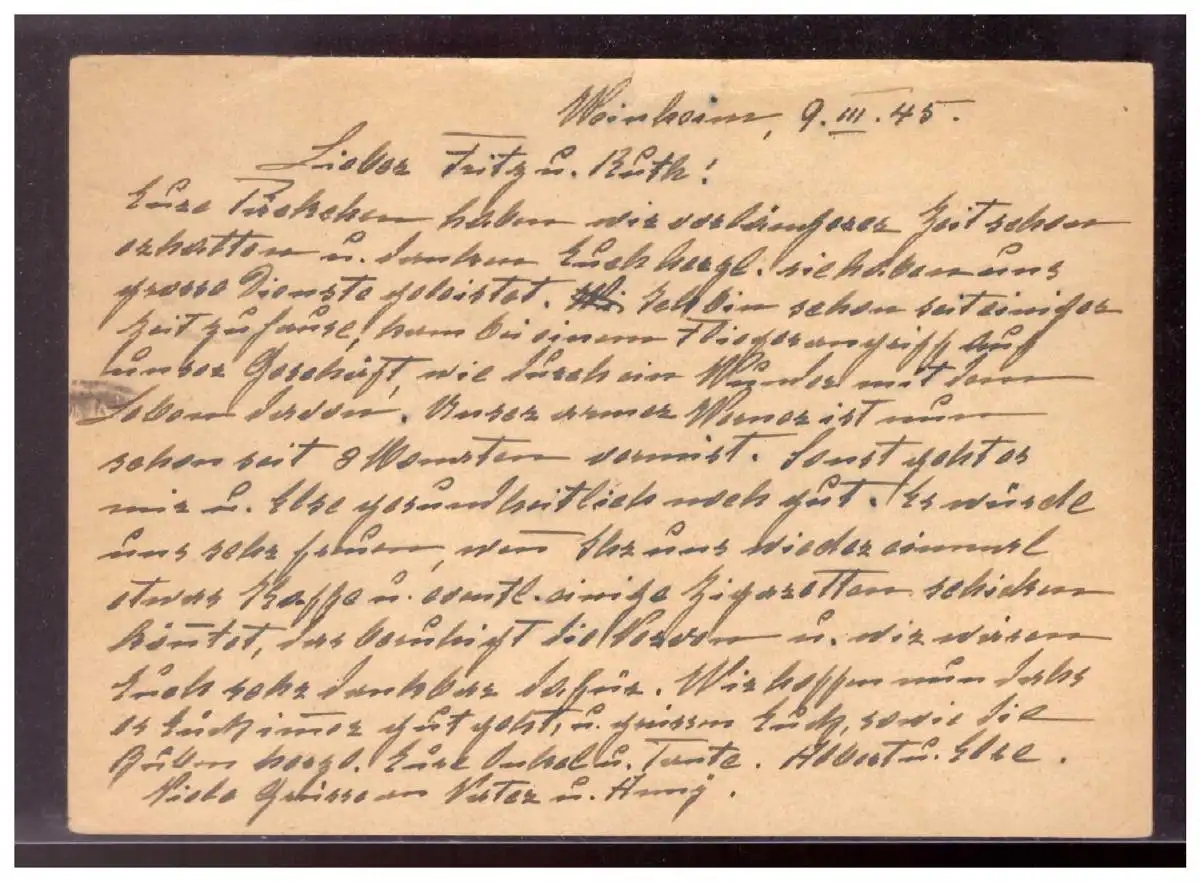 Weinheim, 9.III.45.
Lieber Fritz u. Ruth!
Eure Päckchen haben wir vor längerer Zeit schon
erhalten u. danken Euch herzl. sie haben uns
grosse Dienste geleistet. Ich bin schon seit einiger
Zeit zu Hause, kam bei einem Fliegerangriff auf
unser Geschäft, wie durch ein Wunder mit dem
Leben davon. Unser armer Werner ist nun
schon seit 8 Monaten vermisst. Sonst geht es
mir u. Else gesundheitlich noch gut. Es würde
uns sehr freuen, wen̄ Ihr uns wieder einmal
etwas Kaffe u. eventl. einige Zigaretten schicken
kön̄tet, das beruhigt die Nerven u. wir wären
Euch sehr dankbar dafür. Wir hoffen nun dass
es Euch im̄er gut geht, u. grüssen Euch, sowie die
Buben herzl. Eure Onkel u. Tante. Albert u. Else.
Liebe Grüsse an Vater u. Anny.